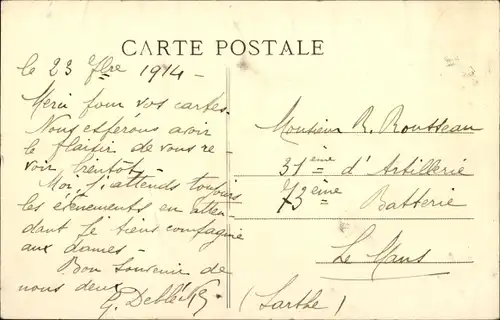 CARTE POSTALE
le 23 7bre 1914 -
Merci pour vos cartes.
Nous espérons avoir
le plaisir de vous re-
voir bientôt -
Moi, j'attends toujours
les évènements en atten-
dant je tiens compagnie
aux dames -
Bon souvenir de
nous deux
Monsieur R. Rousseau
31ème d'Artillerie
73ème Batterie
Le Mans
(Sarthe)